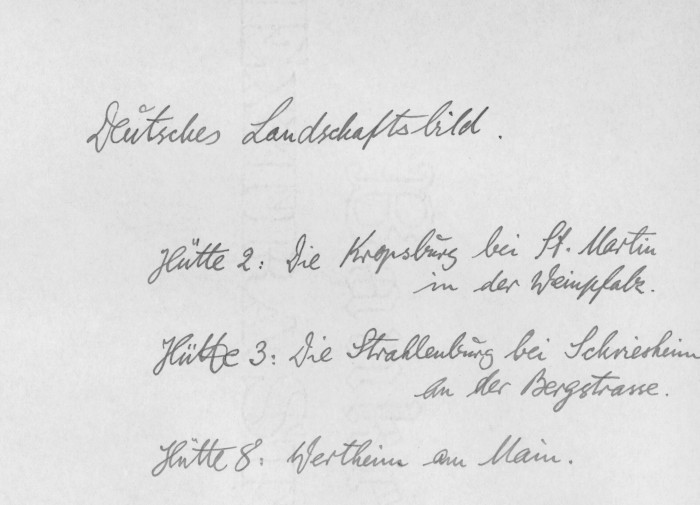 Deutsches Landschaftsbild.
Hütte 2: Die Kropsburg bei St. Martin
in der Weinpfalz.
Hütte 3: Die Strahlenburg bei Schriesheim
an der Bergstrasse.
Hütte 8: Wertheim am Main.